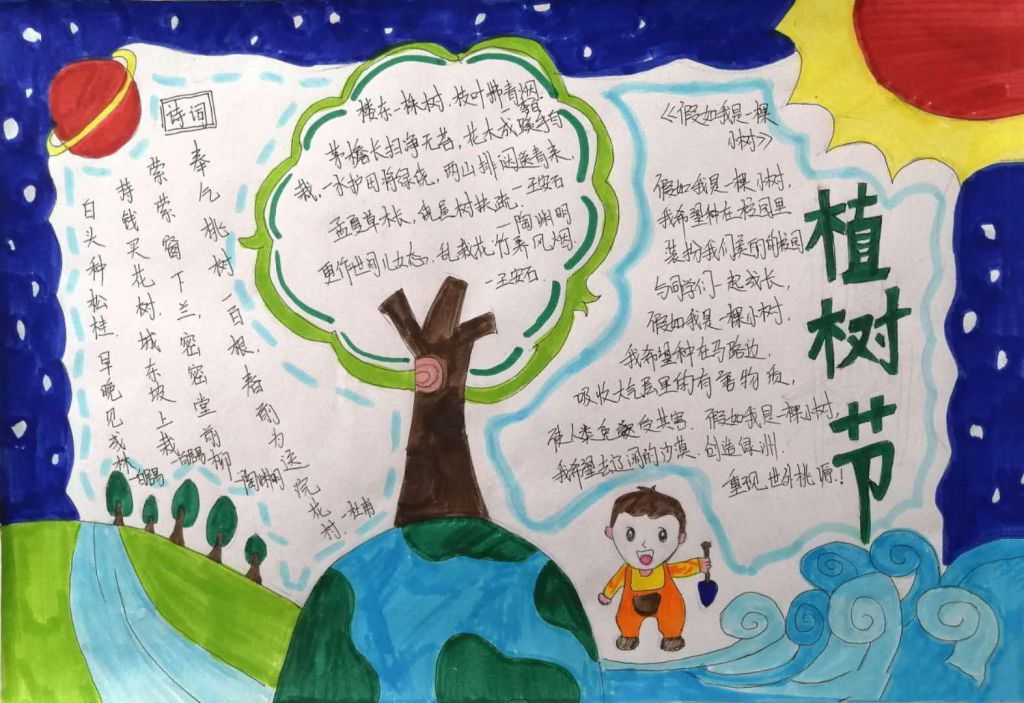 诗词
奉乞桃树一百根.春前为送院花村.—杜甫
萦萦窗下兰,密密堂前柳 陶渊明
持钱买花树.城东坡上栽 —白居易
白头种松桂.早晚见成林 —白居易
楼东一株树.枝叶拂青烟.
李白
茅檐长扫净无苔,花木成蹊手自
栽,一水护田将绿绕,两山排闼送青来.
—王安石
孟夏草木长,绕屋树扶疏.
—陶渊明
更作世间儿女态,乱栽花竹养风烟
—王安石
《假如我是一棵
小树》
假如我是一棵小树,
我希望种在校园里
装扮我们美丽的校园
与同学们一起成长,
假如我是一棵小树.
我希望种在马路边.
吸收大气层里的有害物质,
人类免受其害.假如我是一棵小树,
我希望去辽阔的沙漠.创造绿洲.
重现世外桃源.!
植树节